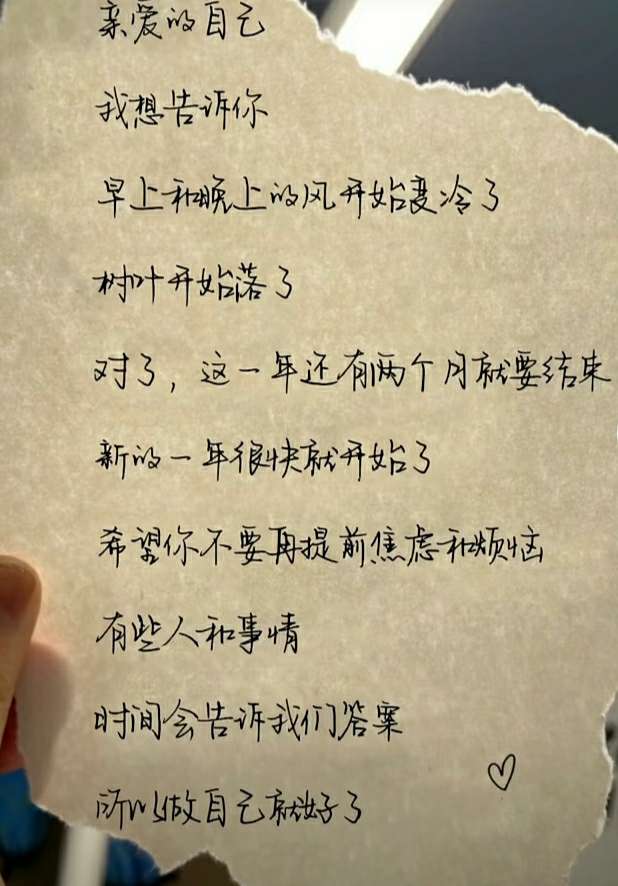 亲爱的自己
我想告诉你
早上和晚上的风开始变冷了
树叶开始落了
对了，这一年还有两个月就要结束
新的一年很快就开始了
希望你不要再提前焦虑和烦恼
有些人和事情
时间会告诉我们答案
所以做自己就好了